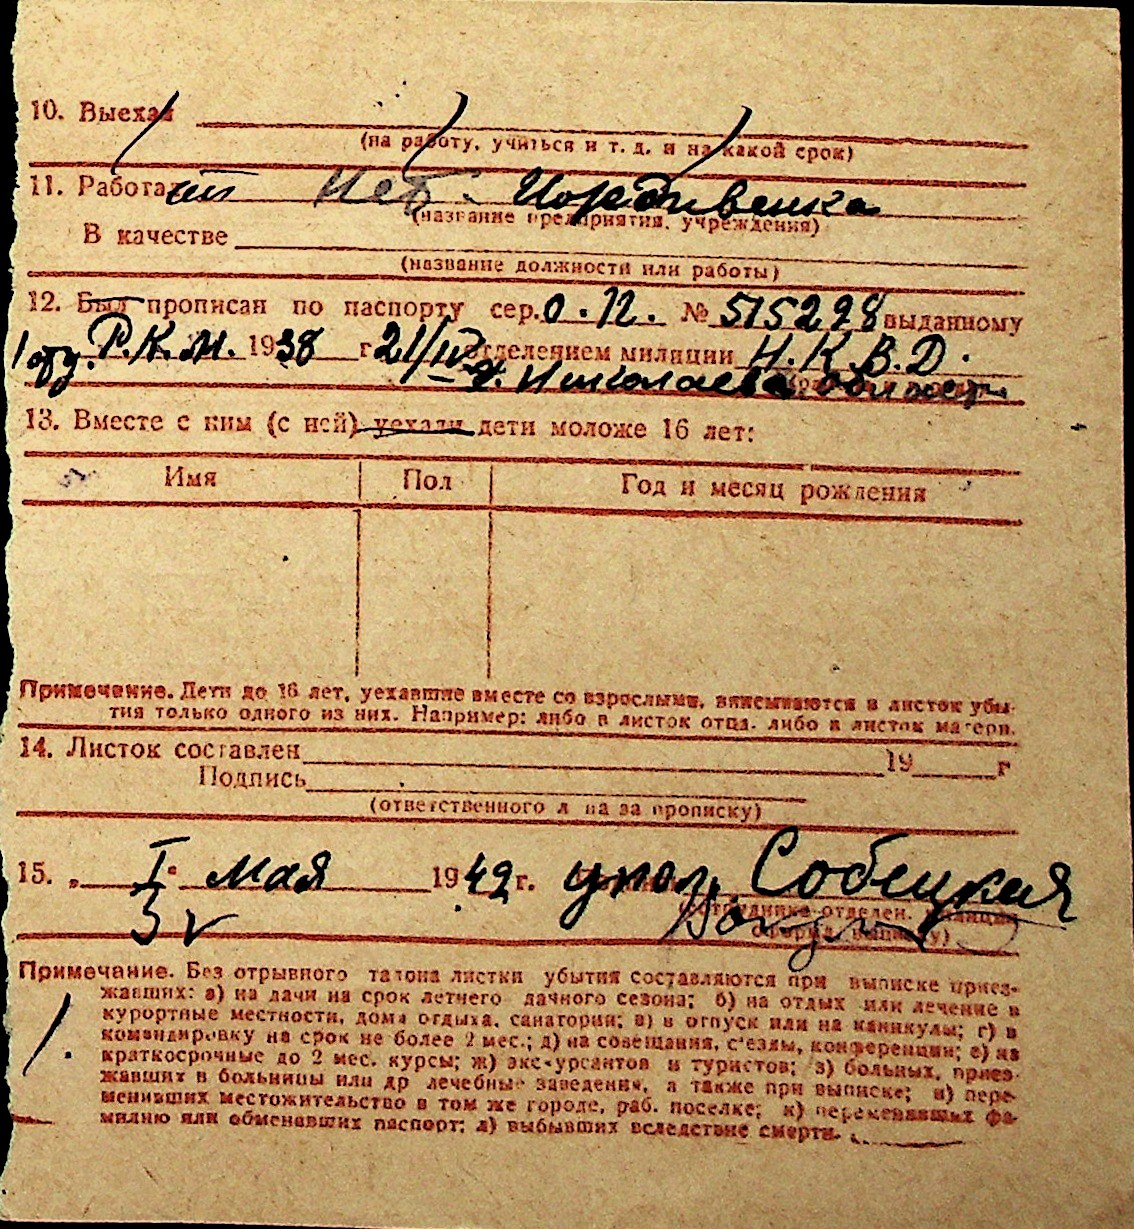 10. Выехал
(на работу, учиться и т. д. и на какой срок)
11. Работа
(название предприятия, учреждения)
В качестве
(название должности или работы)
12. Был прописан по паспорту сер. О.П. № 515298 выданному
1 отд. Р.К.М. 1938 г 21/IV отделением милиции Н.К.В.Д.
г. Николаева
13. Вместе с ним (с ней) уехали дети моложе 16 лет:
Имя Пол Год и месяц рождения
Примечание. Дети до 16 лет, уехавшие вместе со взрослыми, вписываются в листок убы-
тия только одного из них. Например: либо в листок отца, либо в листок матери.
14. Листок составлен 19 г
Подпись
(ответственного л на за прописку)
15. „ I" мая 1942 г. упол. Собецкая
3 V
Примечание. Без отрывного талона листки убытия составляются при выписке приез-
жавших: а) на дачи на срок летнего дачного сезона; б) на отдых или лечение в
курортные местности, дома отдыха, санатории; в) в отпуск или на каникулы; г) в
командировку на срок не более 2 мес.; д) на совещания, съезды, конференции; е) на
краткосрочные до 2 мес. курсы; ж) экскурсантов и туристов; з) больных, приез-
жавших в больницы или др лечебные заведения, а также при выписке; и) пере-
менивших местожительство в том же городе, раб. поселке; к) переменивших фа-
милию или обменявших паспорт; л) выбывших вследствие смерти.